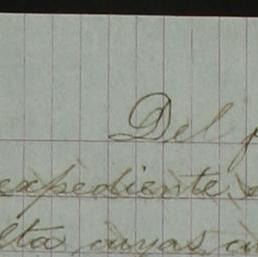 Del
expediente
lta cuyas